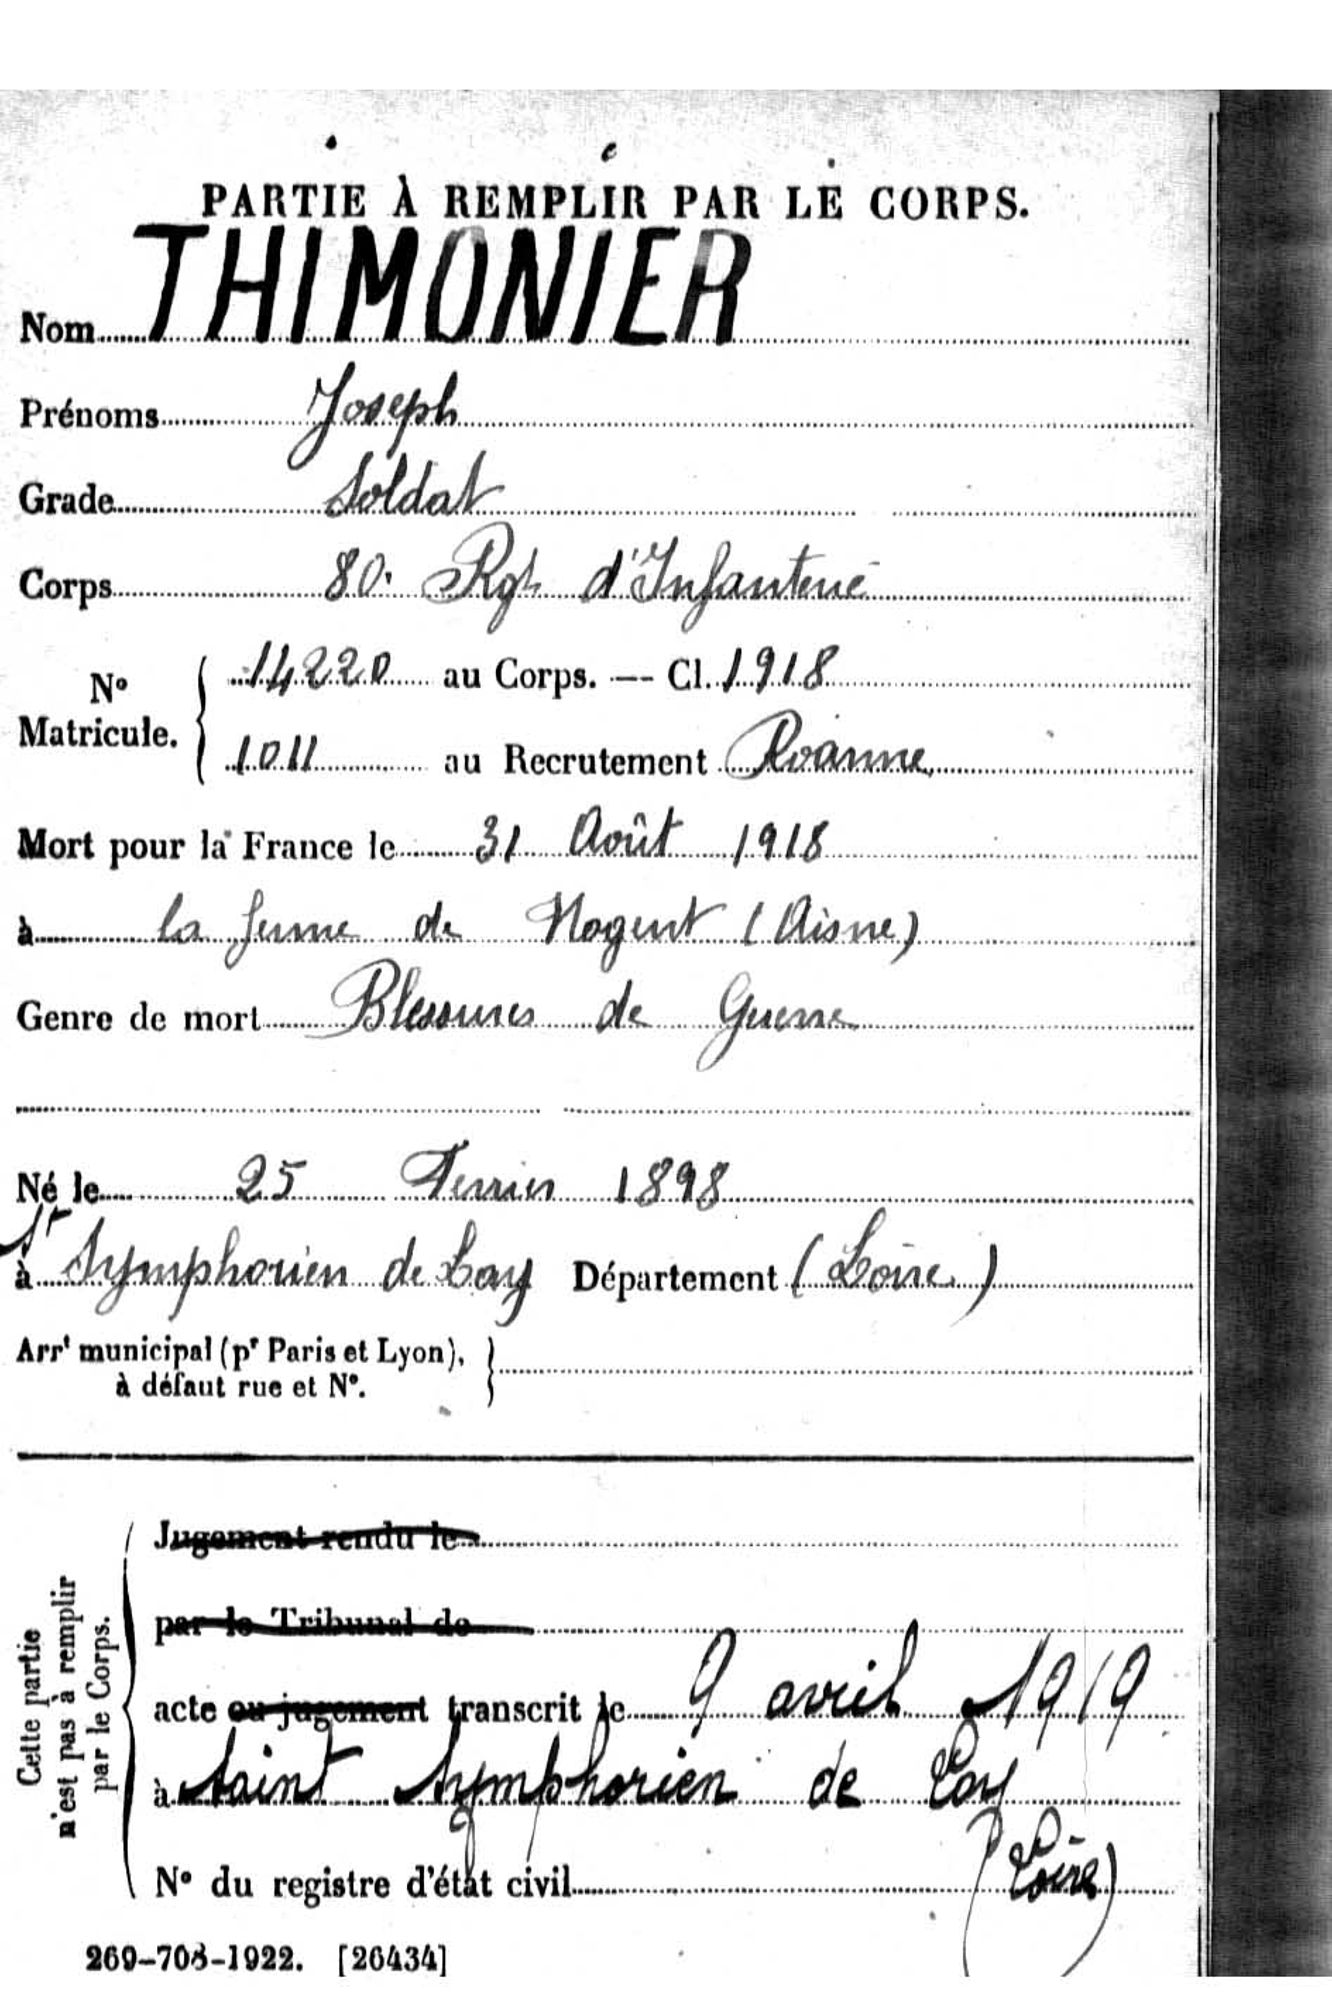 PARTIE À REMPLIR PAR LE CORPS.
Nom THIMONIER
Prénoms Joseph
Grade Soldat
Corps 80. Rgt d'Infanterie
N° Matricule. 14220 au Corps. — Cl. 1918
1011 au Recrutement Roanne
Mort pour la France le 31 Août 1918
à la ferme de Nogent (Aisne)
Genre de mort Blessures de Guerre
Né le 25 Fevrier 1898
à St Symphorien de Lay Département (Loire)
Arrt municipal (pr Paris et Lyon),
à défaut rue et N°.
Cette partie
n'est pas à remplir
par le Corps.
Jugement rendu le
par le Tribunal de
acte ou jugement transcrit le 9 avril 1919
à Saint Symphorien de Lay
(Loire)
N° du registre d'état civil
269-708-1922. [26434]